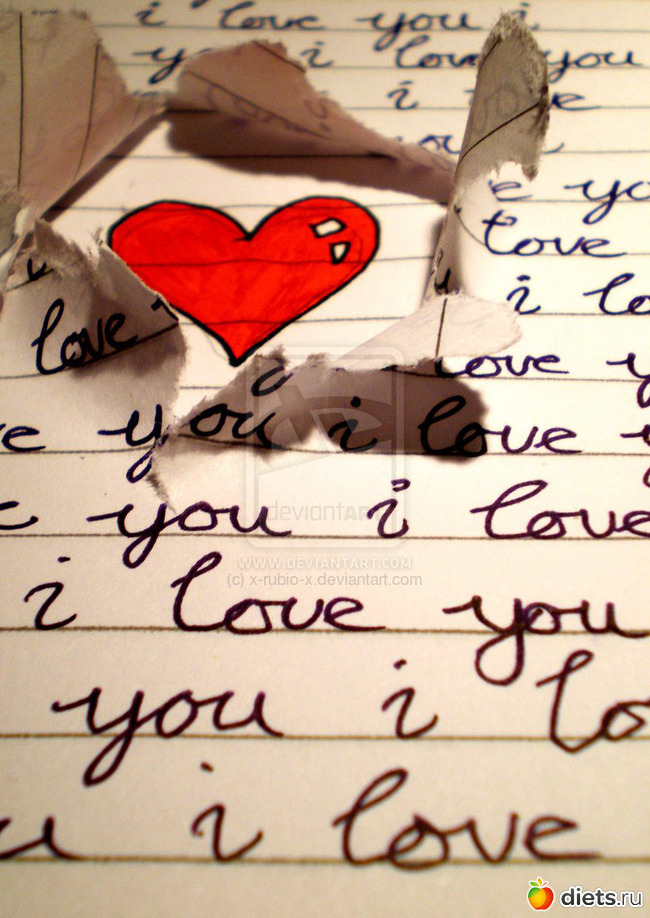 i love you i
i love you
i
you
love
i lo
love
love y
you i love y
you i love
i love you
you i lo
i love
deviantART
WWW.DEVIANTART.COM
(c) x-rubio-x.deviantart.com
diets.ru